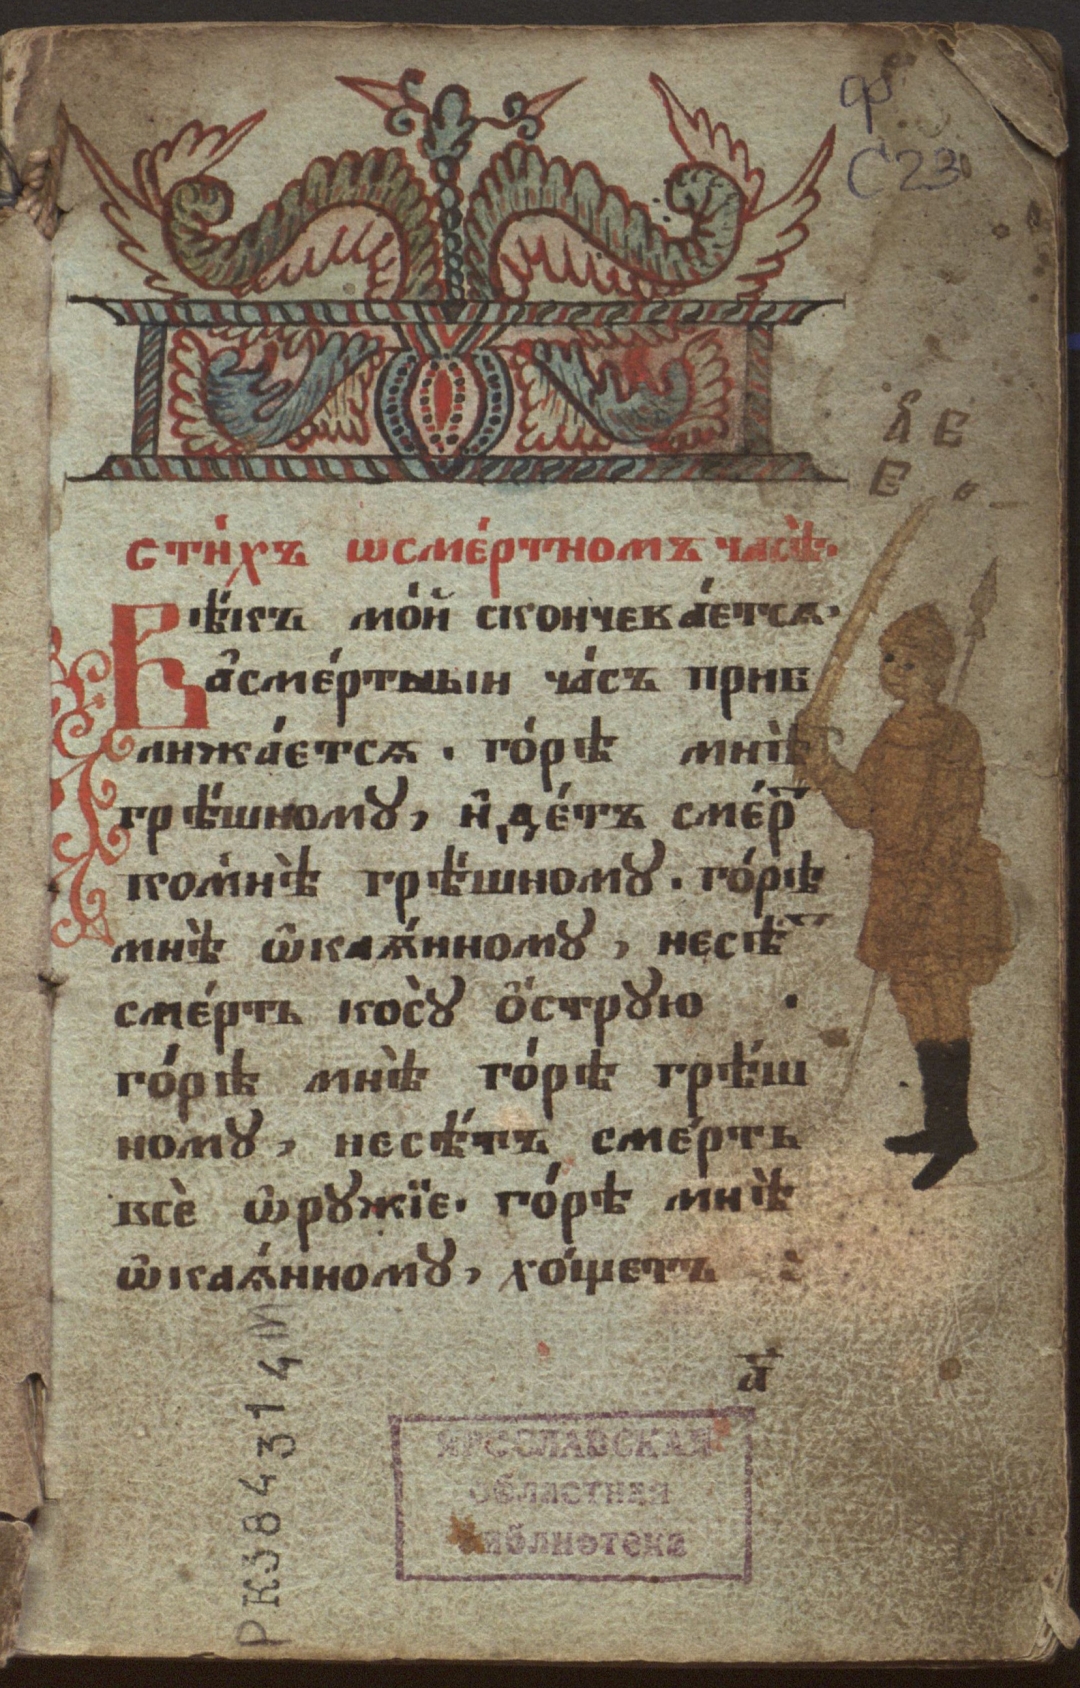 ф
С23
а Е
Е
стꙵхъ ѡсме́ртномъ часѣ̀.
Вѣ́къ мо́й скончева́етсѧ.
а҆сме́ртныин ча́съ приб
лижа́етсѧ. го́рѣ мнѣ̀
грѣ́шномꙋ, и҆де́тъ сме́р
комнѣ̀ грѣ́шномꙋ. го́рѣ
мнѣ̀ ѡ҆каѧ́нномꙋ, несѣт
сме́рть косꙋ̀ о҆́стрꙋю .
го́рѣ мнѣ̀ го́рѣ грѣ́ш
номꙋ, несѣ́тъ сме́рть
всѐ ѡ҆рꙋжїе. го́рѣ мнѣ̀
ѡ҆каѧ́нномꙋ, хо́щетъ
а҃
ЯРОСЛАВСКАЯ
областная
библиотека
РК384314И